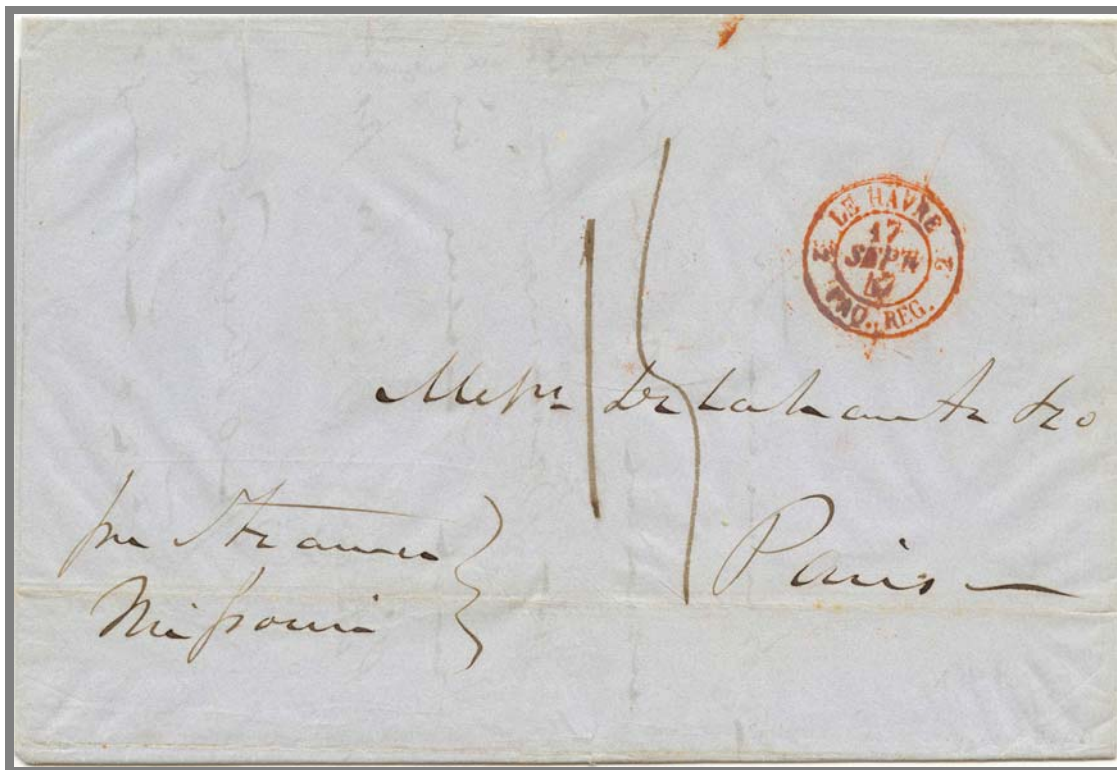 LE HAVRE
2 17 2
SEPT.
47
PAQ. REG.
15
Messrs De Lahante & Co
Paris
per Steamer
Missouri